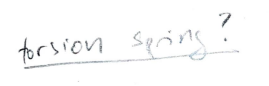 torsion spring?